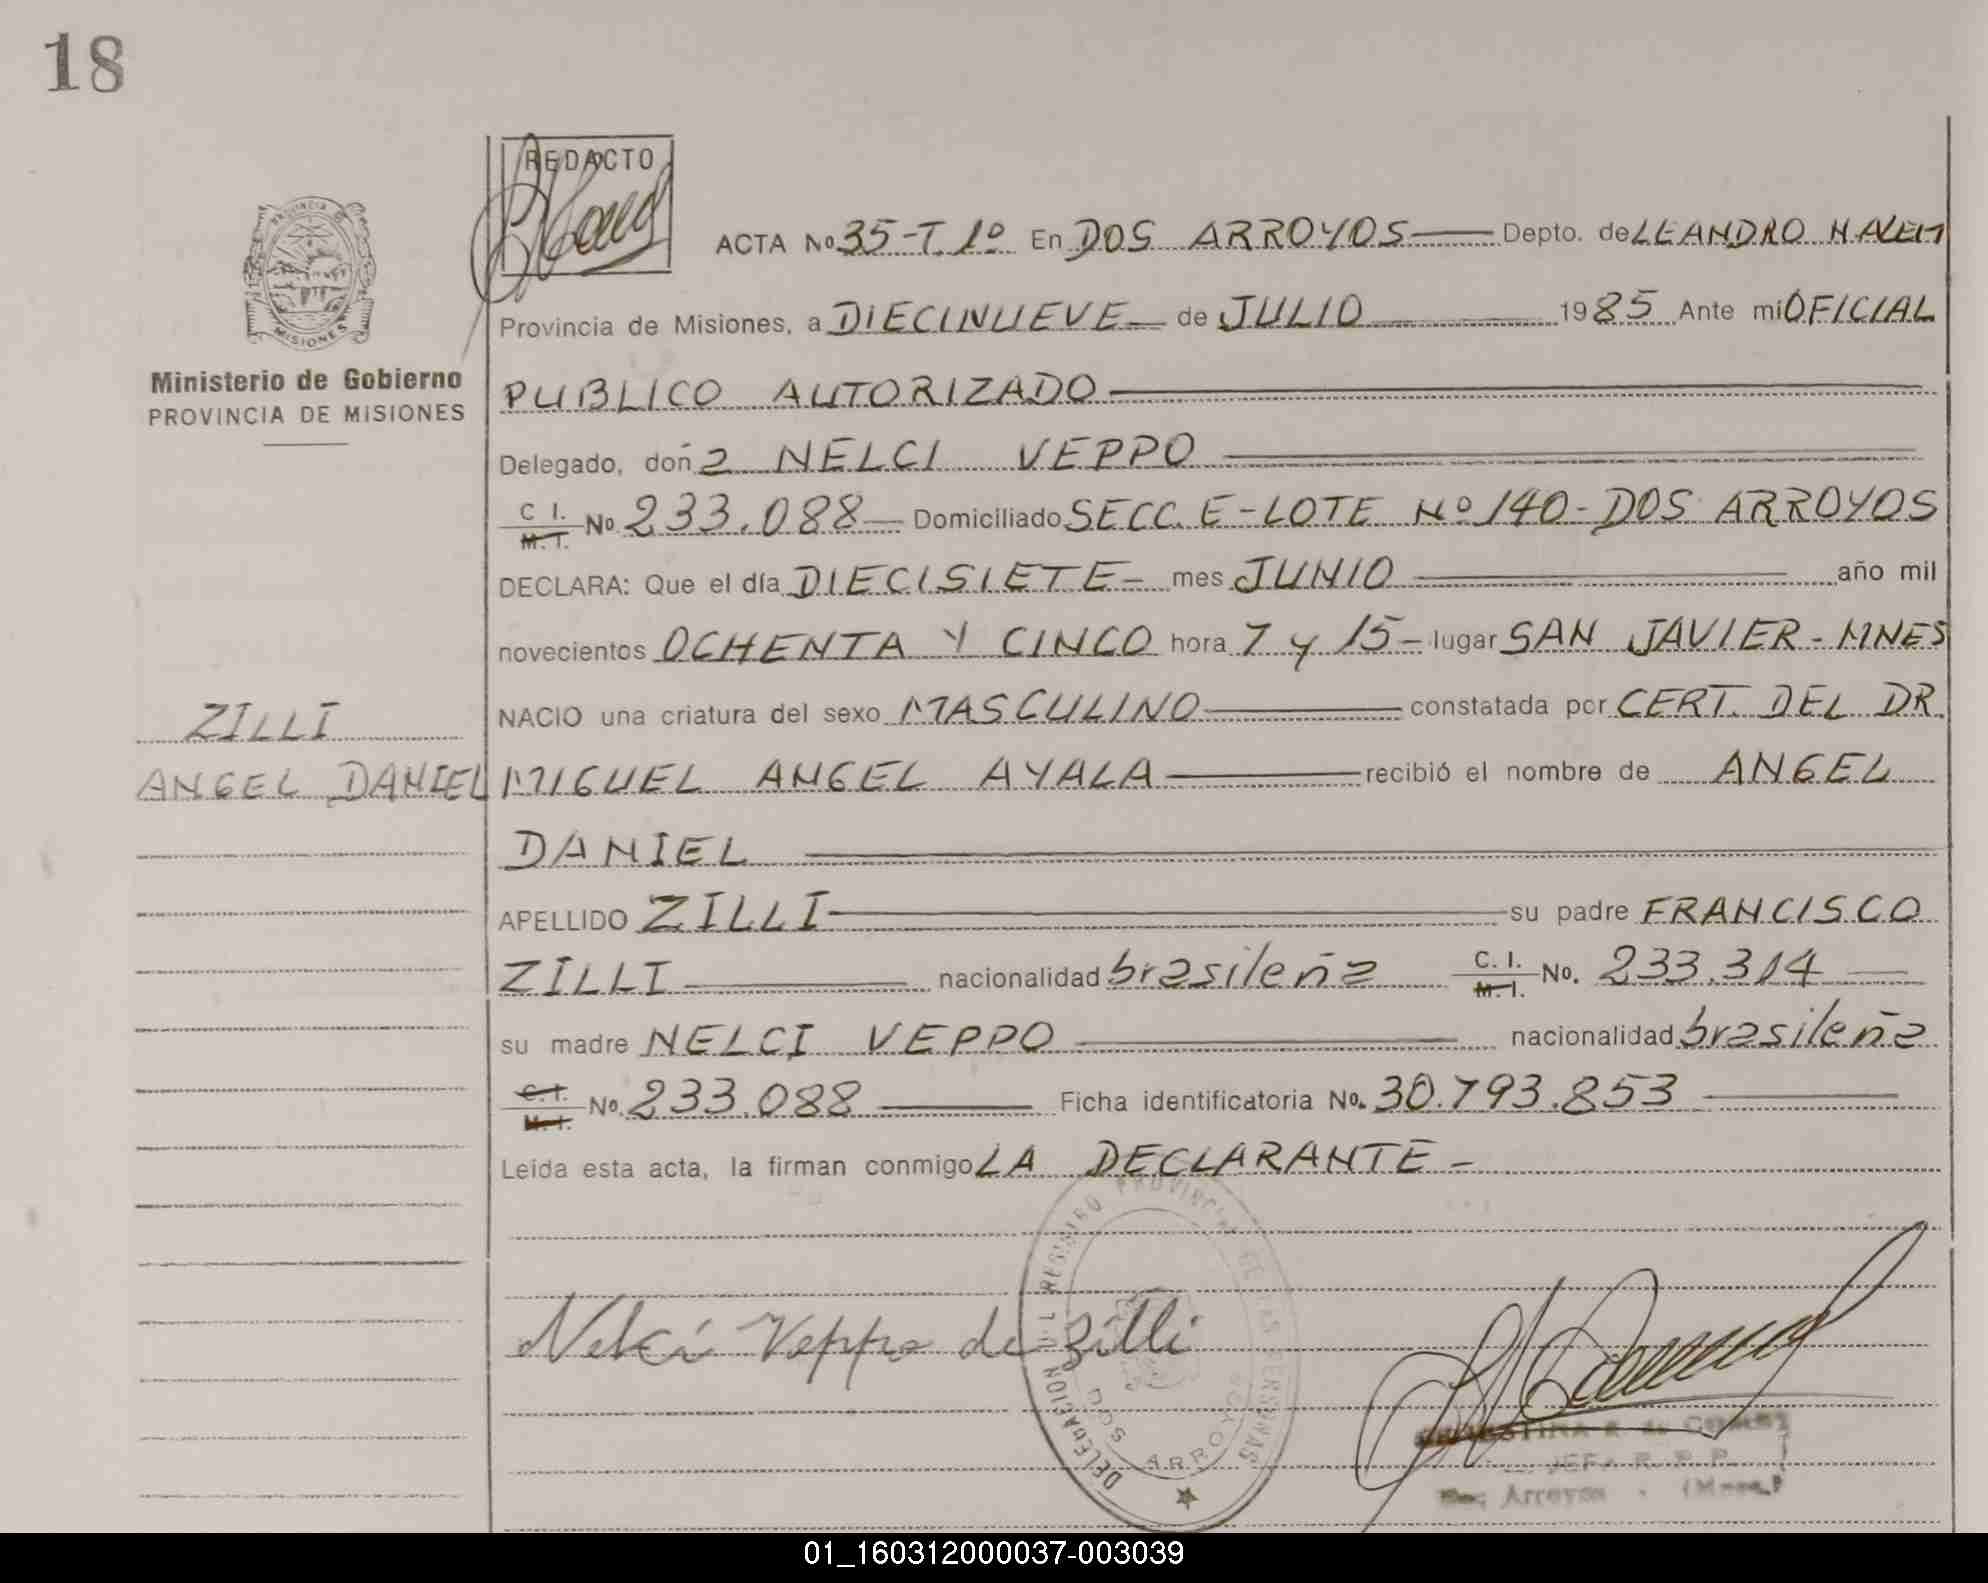 18
REDACTO
PROVINCIA DE
MISIONES
Ministerio de Gobierno
PROVINCIA DE MISIONES
ZILLI
ANGEL DANIEL
ACTA No 35-T. 1º En DOS ARROYOS Depto. de LEANDRO N. ALEM
Provincia de Misiones, a DIECINUEVE de JULIO 1985 Ante mi OFICIAL
PUBLICO AUTORIZADO
Delegado, doña NELCI VEPPO
C I. M. I. No. 233.088 Domiciliado SECC. E-LOTE Nº 140-DOS ARROYOS
DECLARA: Que el día DIECISIETE mes JUNIO año mil
novecientos OCHENTA Y CINCO hora 7 y 15 - lugar SAN JAVIER - MNES
NACIO una criatura del sexo MASCULINO constatada por CERT. DEL DR.
MIGUEL ANGEL AYALA recibió el nombre de ANGEL
DANIEL
APELLIDO ZILLI su padre FRANCISCO
ZILLI nacionalidad brasileña C. I. M. I. No. 233.314
su madre NELCI VEPPO nacionalidad brasileña
C. I. M. I. No. 233.088 Ficha identificatoria No. 30.793.853
Leida esta acta, la firman conmigo LA DECLARANTE -
Nelci Veppo de Zilli
DELEGACION DEL REGISTRO PROVINCIAL DE LAS PERSONAS
DOS ARROYOS
JEFA R. P. P.
Dos Arroyos
01_160312000037-003039